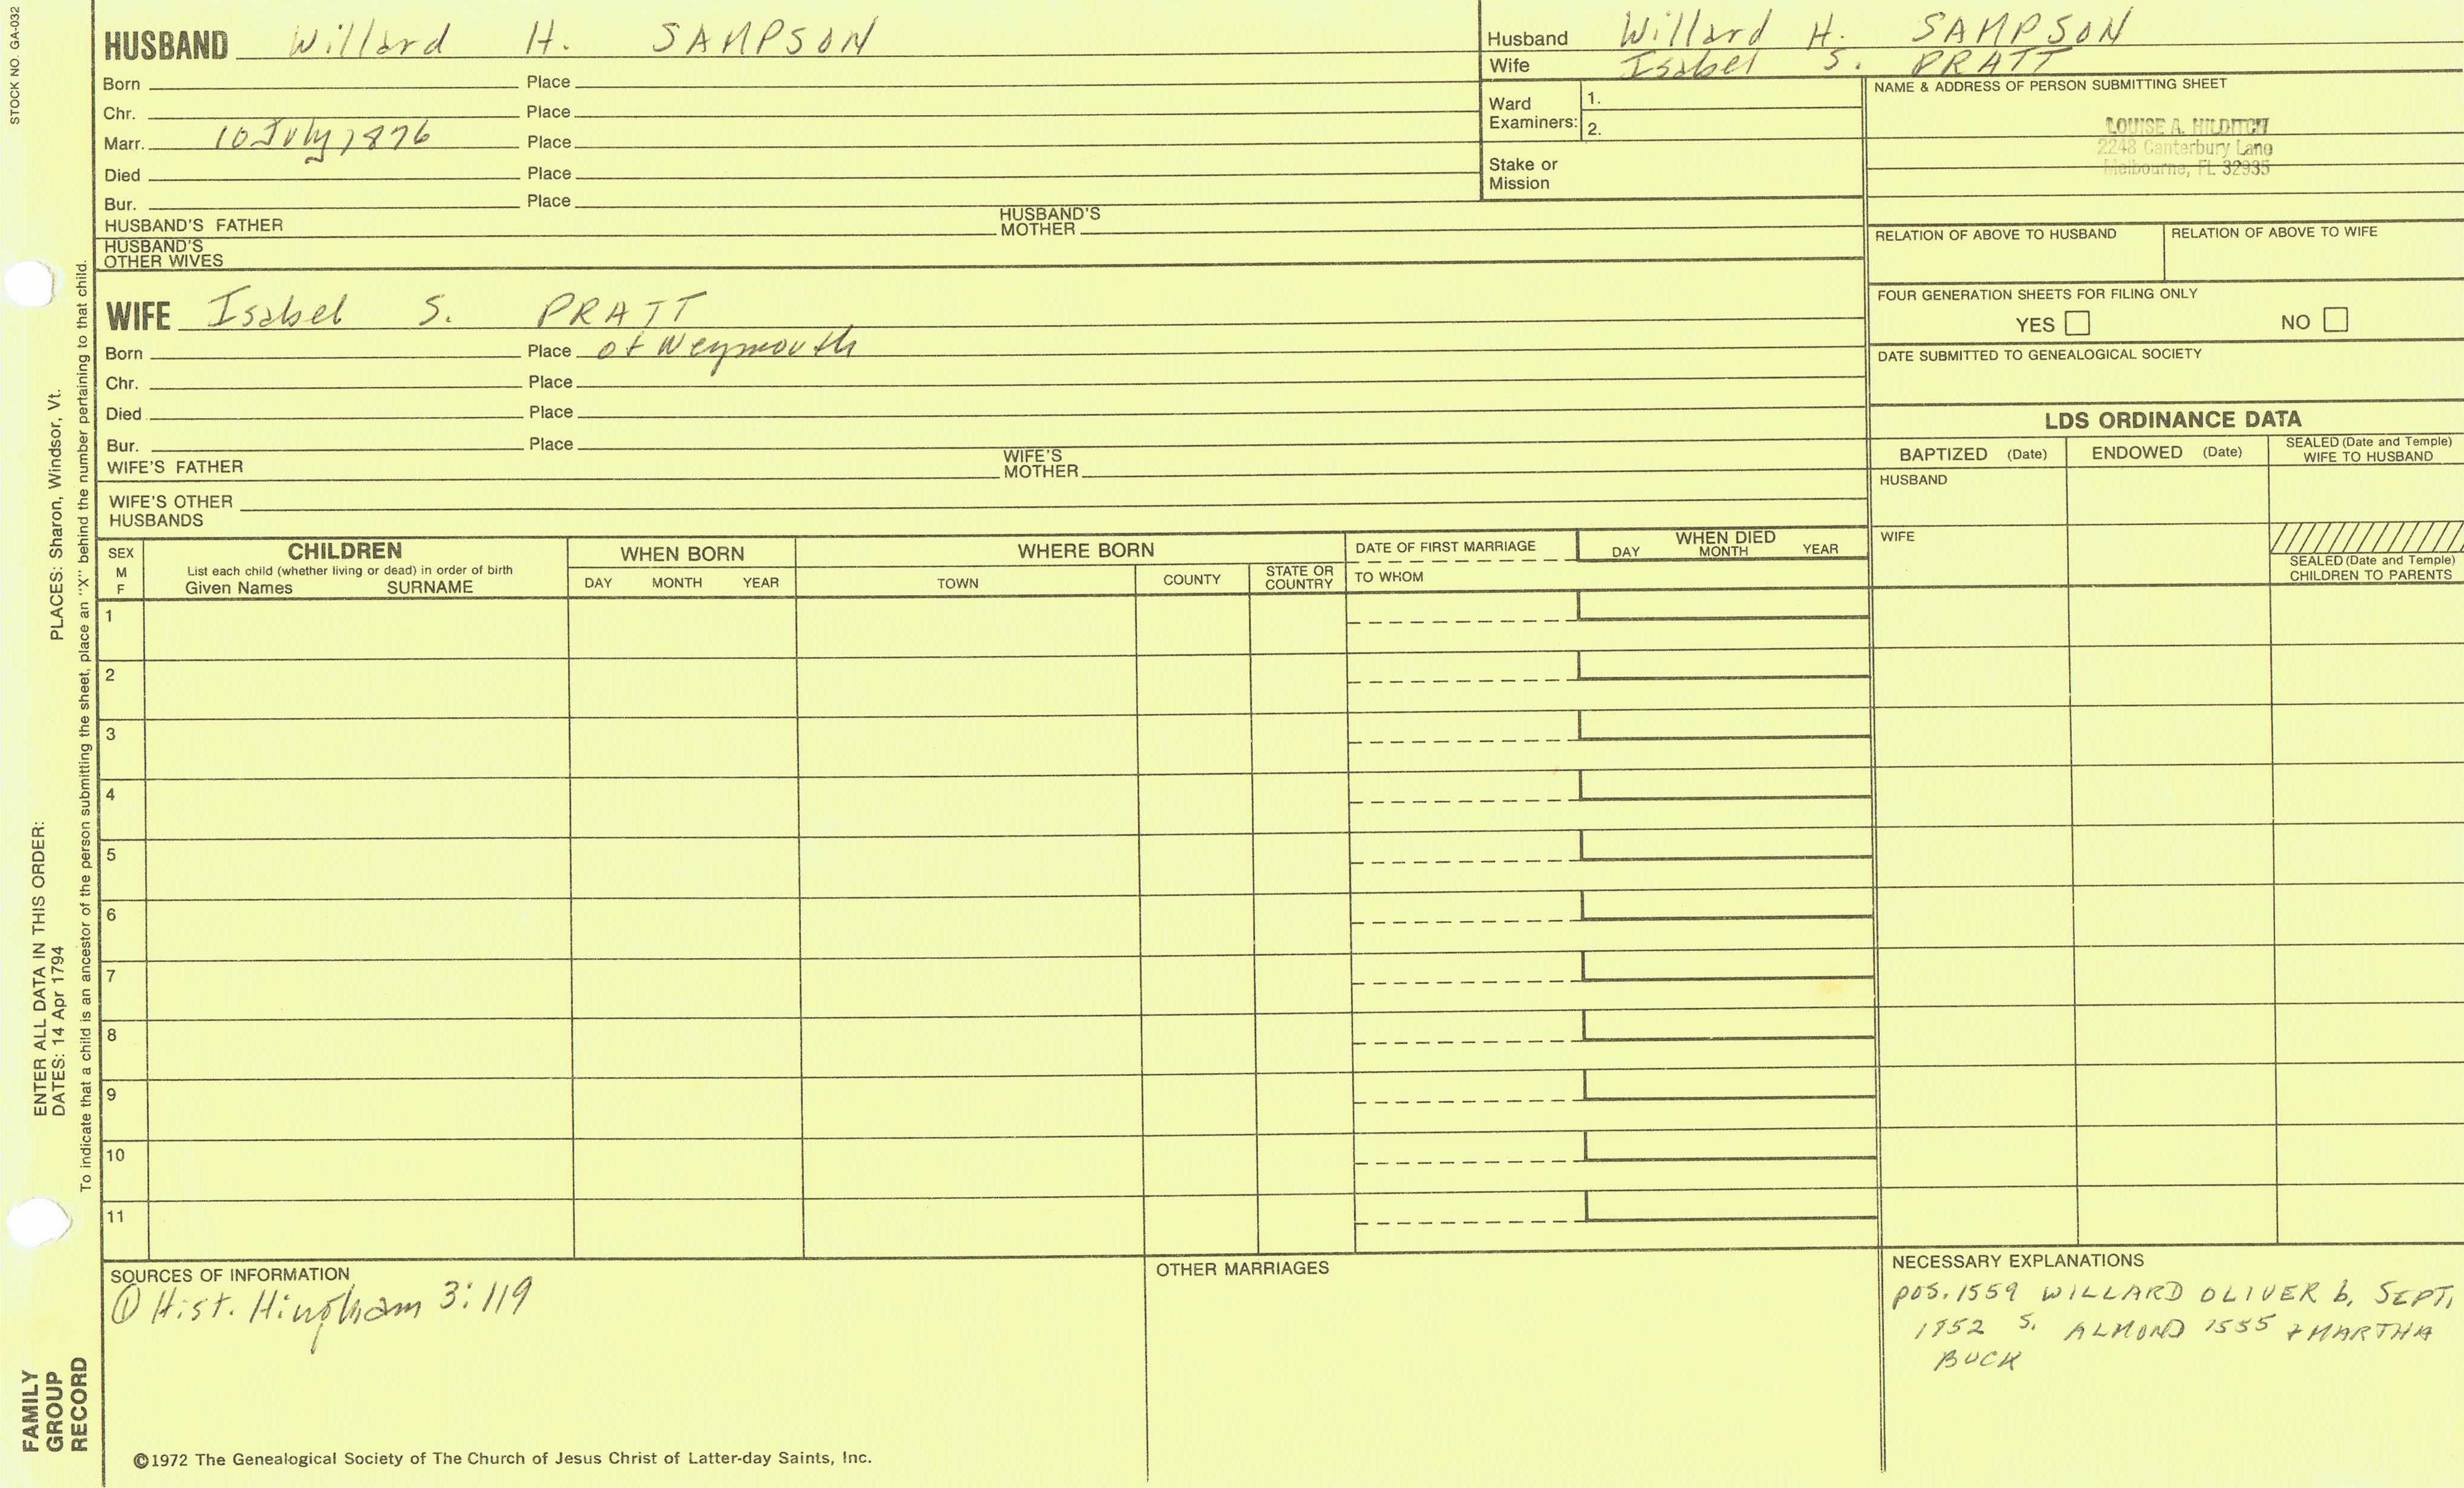 STOCK NO. GA-032
HUSBAND Willard H. SAMPSON
Born Place
Chr. Place
Marr. 10 July 1876 Place
Died Place
Bur. Place
HUSBAND'S FATHER HUSBAND'S MOTHER
HUSBAND'S OTHER WIVES
Husband Willard H. SAMPSON
Wife Isabel S. PRATT
Ward Examiners: 1.
2.
Stake or Mission
NAME & ADDRESS OF PERSON SUBMITTING SHEET
LOUISE A. HILDITCH
2248 Canterbury Lane
Melbourne, FL 32935
RELATION OF ABOVE TO HUSBAND RELATION OF ABOVE TO WIFE
FOUR GENERATION SHEETS FOR FILING ONLY
YES NO
DATE SUBMITTED TO GENEALOGICAL SOCIETY
WIFE Isabel S. PRATT
Born Place of Weymouth
Chr. Place
Died Place
Bur. Place
WIFE'S FATHER WIFE'S MOTHER
WIFE'S OTHER HUSBANDS
LDS ORDINANCE DATA
BAPTIZED (Date) ENDOWED (Date) SEALED (Date and Temple) WIFE TO HUSBAND
HUSBAND
WIFE
SEALED (Date and Temple) CHILDREN TO PARENTS
SEX M F
CHILDREN
List each child (whether living or dead) in order of birth
Given Names SURNAME
WHEN BORN
DAY MONTH YEAR
WHERE BORN
TOWN COUNTY STATE OR COUNTRY
DATE OF FIRST MARRIAGE
TO WHOM
WHEN DIED
DAY MONTH YEAR
1
2
3
4
5
6
7
8
9
10
11
SOURCES OF INFORMATION
① Hist. Hingham 3:119
OTHER MARRIAGES
NECESSARY EXPLANATIONS
POS. 1559 WILLARD OLIVER b. SEPT,
1852 S. ALMOND 1555 + MARTHA
BUCK
©1972 The Genealogical Society of The Church of Jesus Christ of Latter-day Saints, Inc.
ENTER ALL DATA IN THIS ORDER:
DATES: 14 Apr 1794 PLACES: Sharon, Windsor, Vt.
To indicate that a child is an ancestor of the person submitting the sheet, place an "X" behind the number pertaining to that child.
FAMILY
GROUP
RECORD